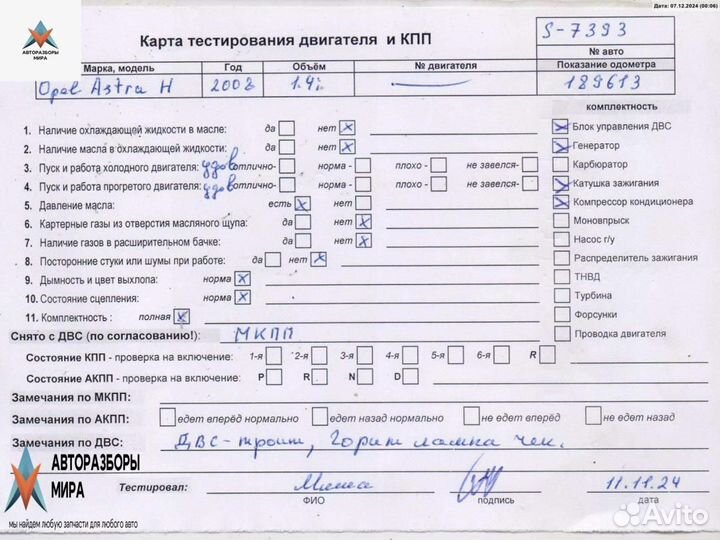 Дата: 07.12.2024 (00:06)
АВТОРАЗБОРЫ
МИРА
Карта тестирования двигателя и КПП
S-7393
№ авто
Марка, модель Год Объём № двигателя Показание одометра
Opel Astra H 2008 1.4i 189613
комплектность
1. Наличие охлаждающей жидкости в масле: да нет
Блок управления ДВС
2. Наличие масла в охлаждающей жидкости: да нет
Генератор
3. Пуск и работа холодного двигателя: удов отлично- норма - плохо - не завелся-
Карбюратор
4. Пуск и работа прогретого двигателя: удов отлично- норма - плохо - не завелся-
Катушка зажигания
5. Давление масла: есть нет
Компрессор кондиционера
6. Картерные газы из отверстия масляного щупа: да нет
Моновпрыск
7. Наличие газов в расширительном бачке: да нет
Насос г/у
8. Посторонние стуки или шумы при работе: да нет
Распределитель зажигания
9. Дымность и цвет выхлопа: норма
ТНВД
10. Состояние сцепления: норма
Турбина
11. Комплектность : полная
Форсунки
Снято с ДВС (по согласованию!): МКПП
Проводка двигателя
Состояние КПП - проверка на включение: 1-я 2-я 3-я 4-я 5-я 6-я R
Состояние АКПП - проверка на включение: P R N D
Замечания по МКПП:
Замечания по АКПП: едет вперёд нормально едет назад нормально не едет вперёд не едет назад
Замечания по ДВС: ДВС-троит, Горит лампа чек.
АВТОРАЗБОРЫ
МИРА
Тестировал: Миша 11.11.24
ФИО подпись дата
мы найдем любую запчасти для любого авто
Avito